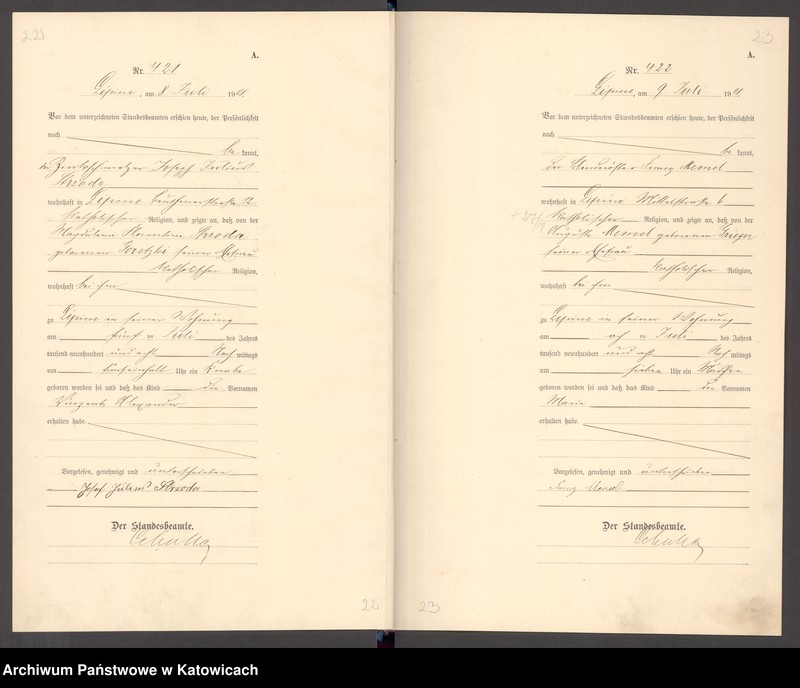 A.
Nr. 421
Lipine, am 8 Juli 190
Vor dem unterzeichneten Standesbeamten erschien heute, der Persönlichkeit
nach
be kannt,
der Zinkschmelzer Joseph Julius
Skroda
wohnhaft in Lipine Beuthenerstraße 12
katholischer Religion, und zeigte an, daß von der
Magdalena Skroda
geborenen seiner Ehefrau
katholischer Religion,
wohnhaft bei ihm
zu Lipine in seiner Wohnung
am fünf Juli des Jahres
tausend neunhundert und acht Nach mittags
um fünfeinhalb Uhr ein Knabe
geboren worden sei und daß das Kind die Vornamen
Vinzent Alexander
erhalten habe.
Vorgelesen, genehmigt und unterschrieben
Josef Julius Skroda
Der Standesbeamte.
22
23
A.
Nr. 422
Lipine, am 9 Juli 190
Vor dem unterzeichneten Standesbeamten erschien heute, der Persönlichkeit
nach
be kannt,
der Franz Memel
wohnhaft in Lipine 6
katholischer Religion, und zeigte an, daß von der
Auguste Memel geborenen Krieger
seiner Ehefrau
katholischer Religion,
wohnhaft bei ihm
zu Lipine in seiner Wohnung
am Juli des Jahres
tausend neunhundert und acht Nach mittags
um sieben Uhr ein Mädchen
geboren worden sei und daß das Kind die Vornamen
Maria
erhalten habe.
Vorgelesen, genehmigt und unterschrieben
Franz Memel
Der Standesbeamte.
23
Archiwum Państwowe w Katowicach